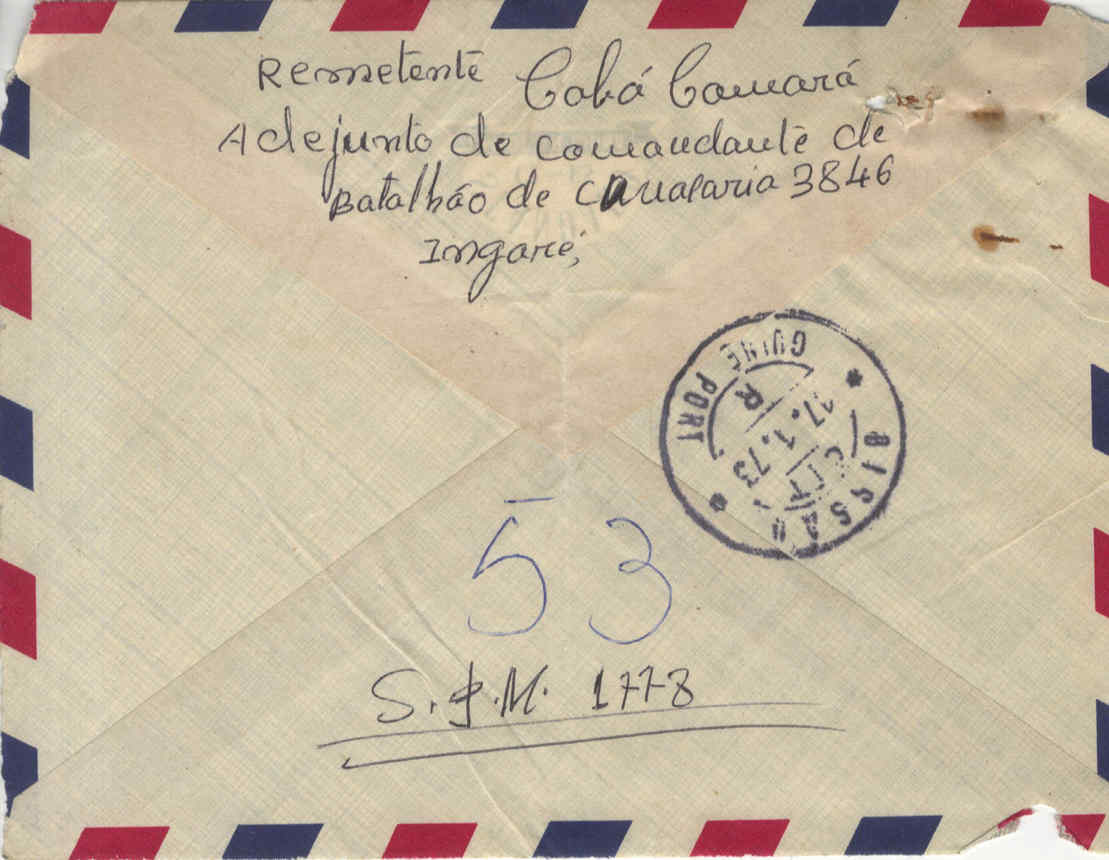 Remetente Cobá Camará
Adejunto de comandante de
Batalhão de Cavalaria 3846
Ingoré,
GUINÉ PORT
BISSAU
R
17.1.73
53
S.P.M. 1778